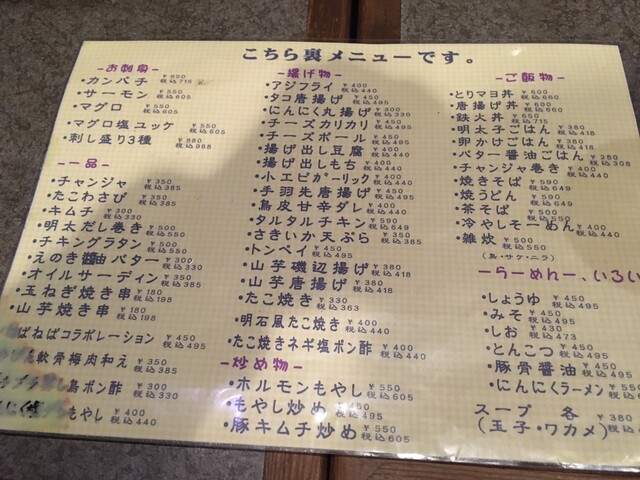 こちら裏メニューです。
-お刺身-
・カンパチ ¥650 税込715
・サーモン ¥550 税込605
・マグロ ¥550 税込605
・マグロ塩ユッケ ¥550 税込605
・刺し盛り3種 ¥880 税込968
-一品-
・チャンジャ ¥350 税込385
・たこわさび ¥350 税込385
・キムチ ¥300 税込330
・明太だし巻き ¥500 税込550
・チキングラタン ¥500 税込550
・えのき醤油バター ¥300 税込330
・オイルサーディン ¥350 税込385
・玉ねぎ焼き串 ¥180 税込198
・山芋焼き串 ¥180 税込198
ばねばコラボレーション ¥450 税込495
軟骨梅肉和え ¥350 税込385
鳥ポン酢 ¥300 税込330
もやし ¥400 税込440
-揚げ物-
・アジフライ ¥400 税込440
・タコ唐揚げ ¥450 税込495
・にんにく丸揚げ ¥300 税込330
・チーズカリカリ ¥450 税込495
・チーズボール ¥450 税込495
・揚げ出し豆腐 ¥400 税込440
・揚げ出しもち ¥400 税込440
・小エビガーリック ¥400 税込440
・手羽先唐揚げ ¥450 税込495
・鳥皮甘辛ダレ ¥400 税込440
・タルタルチキン ¥590 税込649
・さきいか天ぷら ¥350 税込385
・トンペイ ¥450 税込495
・山芋磯辺揚げ ¥380 税込418
・山芋唐揚げ ¥380 税込418
・たこ焼き ¥330 税込363
・明石風たこ焼き ¥400 税込440
・たこ焼きネギ塩ポン酢 ¥400 税込440
-炒め物-
・ホルモンもやし ¥550 税込605
・もやし炒め ¥450 税込495
・豚キムチ炒め ¥550 税込605
-ご飯物-
・とりマヨ丼 ¥600 税込660
・唐揚げ丼 ¥600 税込660
・鉄火丼 ¥650 税込715
・明太子ごはん ¥380 税込418
・卵かけごはん ¥380 税込418
・バター醤油ごはん ¥280 税込308
・チャンジャ巻き ¥400 税込440
・焼きそば ¥590 税込649
・焼うどん ¥590 税込649
・茶そば ¥500 税込550
・冷やしそーめん ¥400 税込440
・雑炊 ¥500 税込550
(鳥・サケ・ニラ)
-らーめんー、いろい
・しょうゆ ¥450 税込495
・みそ ¥450 税込495
・しお ¥430 税込473
・とんこつ ¥450 税込495
・豚骨醤油 ¥450 税込495
・にんにくラーメン ¥550
スープ 各 ¥380
(玉子・ワカメ)